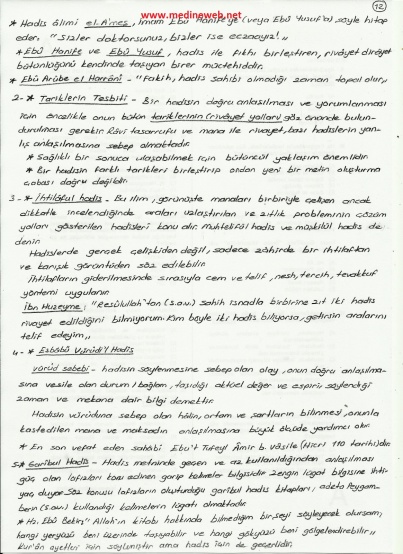 www.medineweb.net
12
* Hadis âlimi el.A'meş, İmam Ebû Hanife'ye (veya Ebû Yusuf'a) şöyle hitap
eder: "Sizler doktorsunuz, bizler ise eczacıyız!"
* Ebû Hanife ve Ebû Yusuf, hadis ile fıkhı birleştiren, rivâyet dirâyet
bütünlüğünü kendinde taşıyan birer müctehiddir.
* Ebû Arûbe el Harrânî - "Fakih, hadis sahibi olmadığı zaman topal olur„
2- * Tariklerin Tesbiti - Bir hadisin doğru anlaşılması ve yorumlanması
için öncelikle onun bütün tariklerinin (rivâyet yolları) göz önünde bulun-
durulması gerekir. Râvi tasarrufu ve mana ile rivayet, bazı hadislerin yan-
lış anlaşılmasına sebep olmaktadır.
* Sağlıklı bir sonuca ulaşabilmek için bütüncül yaklaşım önemlidir.
* Bir hadisin farklı tarikleri birleştirip ondan yeni bir metin oluşturma
çabası doğru değildir.
3- * İhtilâful hadis - Bu ilim, görünüşte manaları birbiriyle çelişen ancak
dikkatle incelendiğinde araları uzlaştırılan ve zıtlık probleminin çözüm
yolları gösterilen hadisleri konu alır. Muhtelifül hadis ve müşkilül hadis de
denir.
Hadislerde gerçek çelişkiden değil, sadece zâhirde bir ihtilaftan
ve karışık görüntüden söz edilebilir.
İhtilafların giderilmesinde sırasıyla cem ve telif, nesh, tercih, tevakkuf
yöntemi uygulanır.
İbn Huzeyme; "Resûlullah'tan (s.a.v.) sahih isnadla birbirine zıt iki hadis
rivayet edildiğini bilmiyorum. Kim böyle iki hadis biliyorsa, getirsin aralarını
telif edeyim„
4- * Esbâbü Vürûdi'l Hadis
vürûd sebebi - hadisin söylenmesine sebep olan olay, onun doğru anlaşılma-
sına vesile olan durum / bağlam, taşıdığı aktüel değer ve espirisi, söylendiği
zaman ve mekana dair bilgi demektir.
Hadisin vürûduna sebep olan hâlin, ortam ve şartların bilinmesi, onunla
kastedilen mana ve maksadın anlaşılmasına büyük ölçüde yardımcı olur.
* En son vefat eden sahâbi Ebu't Tufeyl Âmir b. Vâsile (Hicri 110 tarihi)dir.
5- * Garibul Hadis - Hadis metninde geçen ve az kullanıldığından anlaşılması
güç olan lafızları konu edinen garip kelimeler bilgisidir. Zengin lügat bilgisine ihti-
yaç duyar. Söz konusu lafızların oluşturduğu garibul hadis kitapları; adeta Peygam-
berin (s.a.v.) kullandığı kelimelerin lügatı olmaktadır.
* Hz. Ebû Bekir: "Allah'ın kitabı hakkında bilmediğim bir şeyi söyleyerek olursam;
hangi yeryüzü beni üzerinde taşıyabilir ve hangi gökyüzü beni gölgelendirebilir„
Kur'ân ayetleri için söylemiştir ama hadis için de geçerlidir.